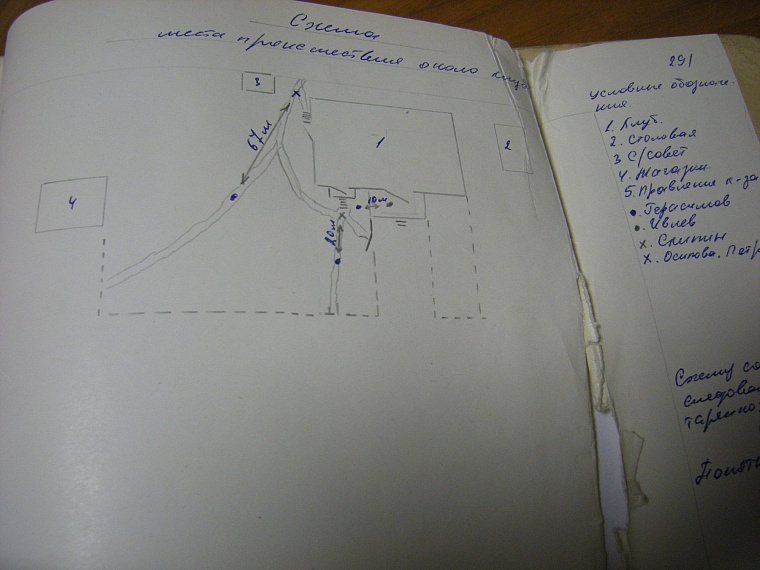 Схема
места происшествия около клуб
3
1
2
4
64 м
10 м
20 м
291
условные обозначе-
ния.
1. Клуб.
2. Столовая
3 С/совет
4. Магазин.
5. Правление к-за
. Герасимов
. Ивлев
х. Скипин
х. Осипова, Петр
Схему со
следова